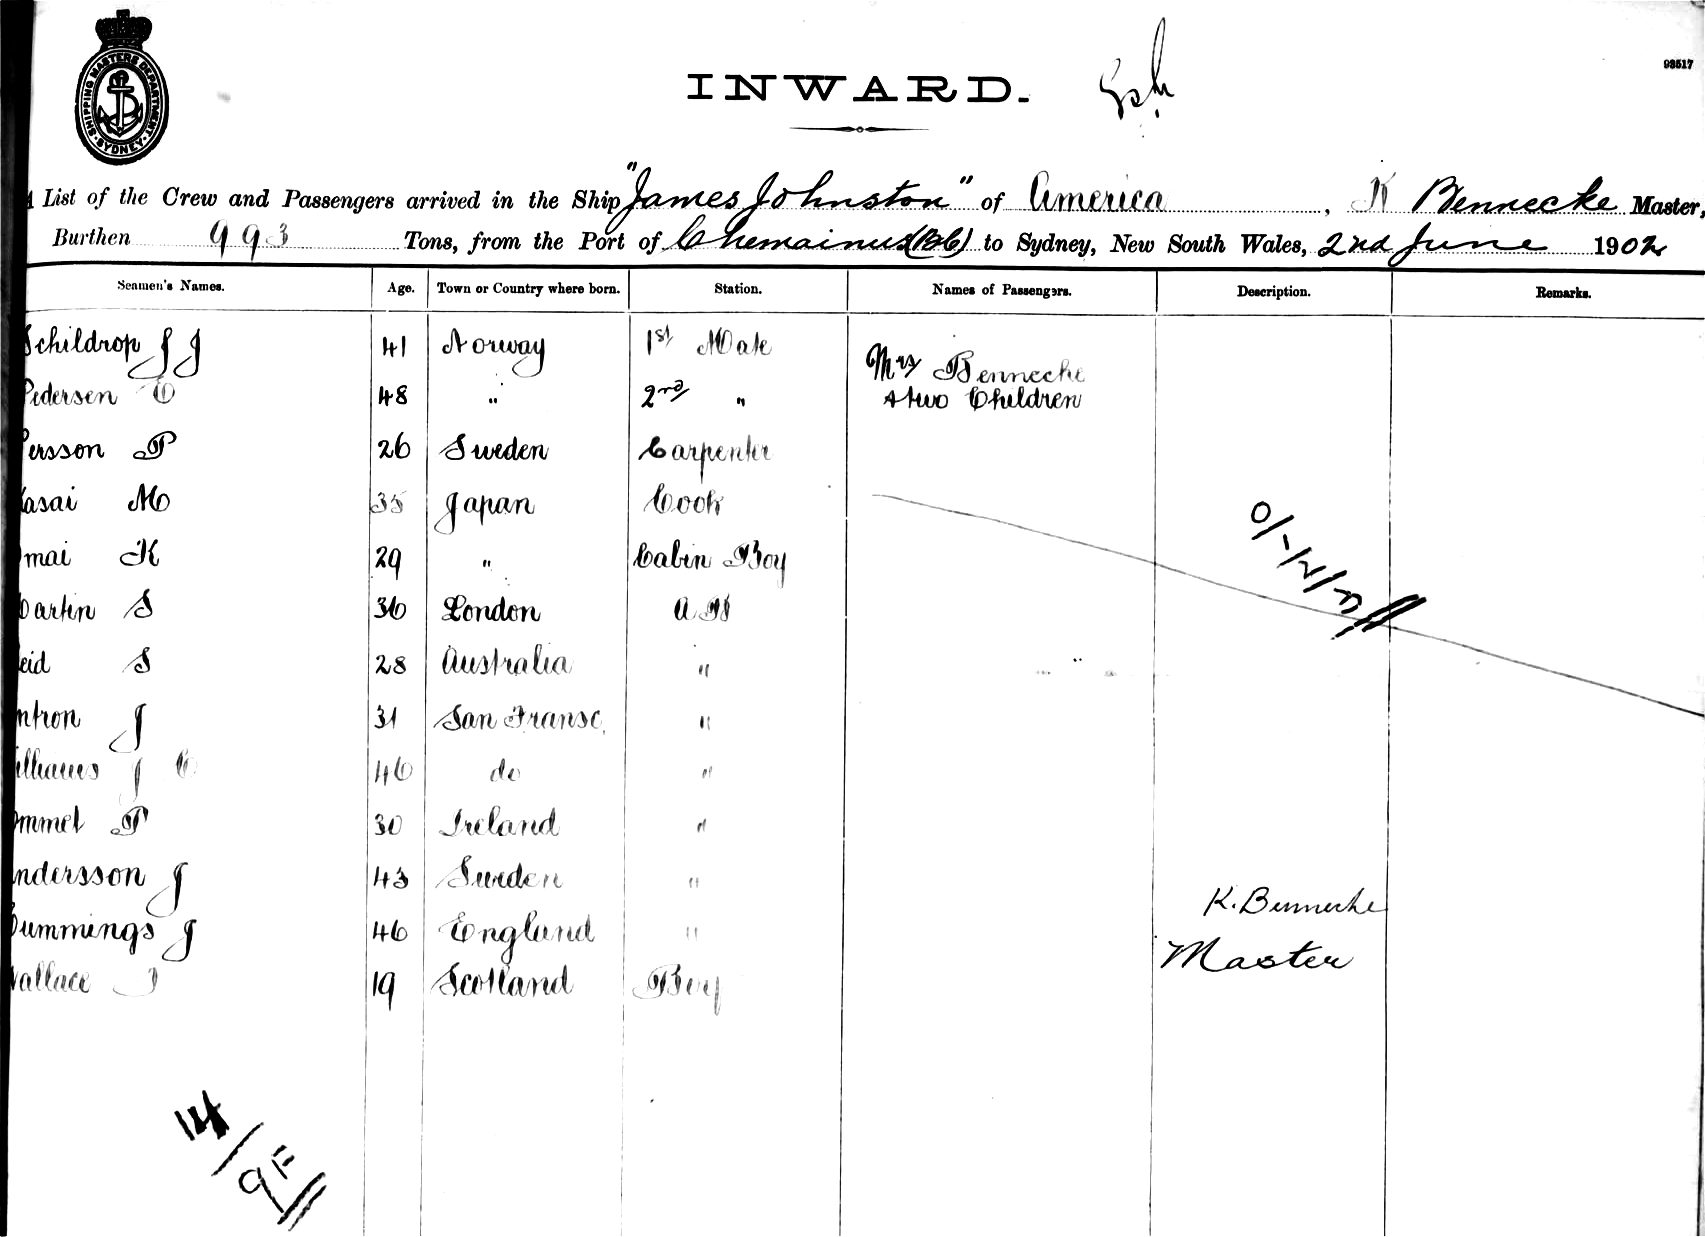 SHIPPING MASTERS DEPARTMENT · SYDNEY ·
INWARD.
93517
A List of the Crew and Passengers arrived in the Ship "James Johnston" of America, K Bennecke Master,
Burthen 993 Tons, from the Port of Chemainus (BC) to Sydney, New South Wales, 2nd June 1902
Seamen's Names. Age. Town or Country where born. Station. Names of Passengers. Description. Remarks.
Schildrop J J 41 Norway 1st Mate
Mrs Bennecke
Pedersen C 48 " 2nd " + two Children
Persson P 26 Sweden Carpenter
Kasai M 35 Japan Cook
mai K 29 " Cabin Boy
Martin S 36 London A B
eid S 28 Australia "
ntron J 31 San Fransc. "
illiams J C 46 do "
mmet P 30 Ireland "
ndersson J 43 Sweden "
K. Bennecke
Cummings J 46 England "
Master
Wallace J 19 Scotland Boy
0/-/2/3
14/9"